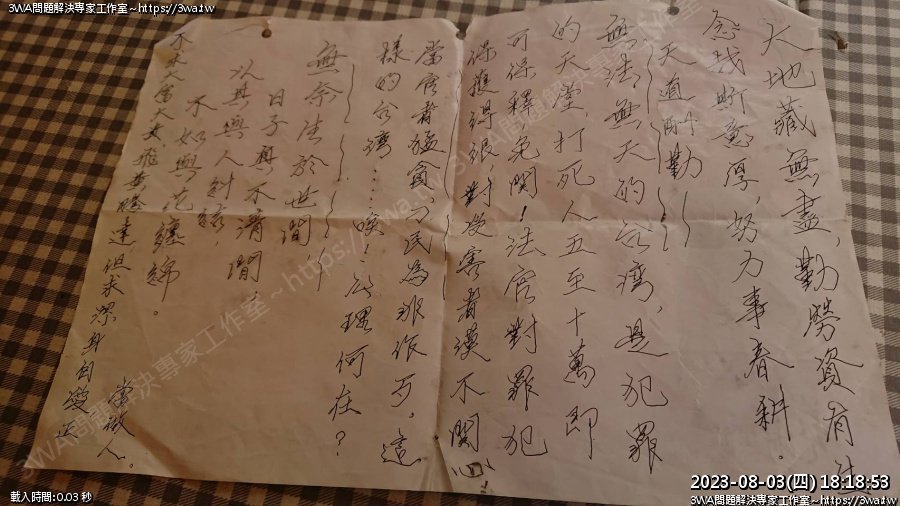 3WA問題解決專家工作室~https://3wa.tw
大地藏無盡，勤勞資有生
念哉斯意厚，努力事春耕。
天道酬勤
無法無天的台灣，是犯罪
的天堂，打死人五至十萬即
可保釋免關！法官對罪犯
保護得很，對受害者漠不關
心
當官者猛貪，民為非作歹。這
樣的台灣……唉！公理何在？
無奈生於世間，
日子真不清閒
以其與人糾結，
不如與花纏綿。
不求大富大貴，飛黃騰達，但求潔身自愛
當做人。
3WA問題解決專家工作室~https://3wa.tw
載入時間:0.03 秒
2023-08-03(四) 18:18:53
3WA問題解決專家工作室~https://3wa.tw